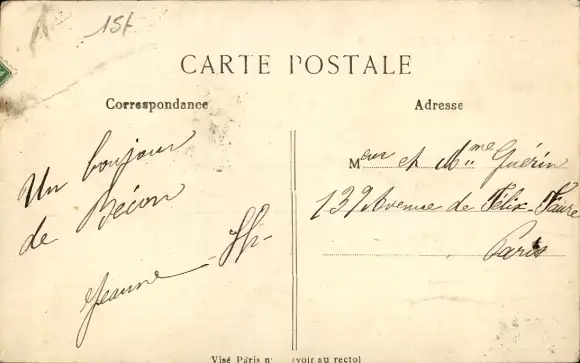 15f
CARTE POSTALE
Correspondance
Adresse
Un bonjour
de Bécon
Jeanne
Meur et Mme Guérin
139 Avenue de Félix-Faure
Paris
Visé Paris nº (voir au recto)